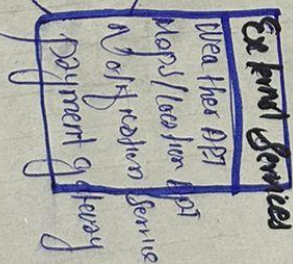 External Services
Weather API
Maps/location API
Notification Service
payment gateway